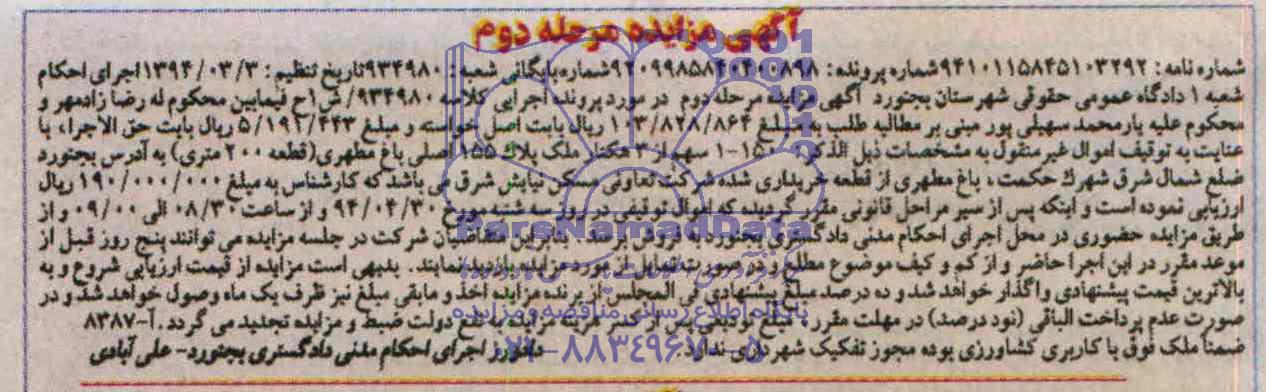 آگهی مزایده مرحله دوم
شماره نامه: ۹۴۱۰۱۱۵۸۴۵۱۰۳۲۹۲ شماره پرونده: ۹۲۰۹۹۸۵۸۴۰۴۰۰۸۹۸ شماره بایگانی شعبه: ۹۳۴۹۸۰ تاریخ تنظیم: ۱۳۹۴/۰۳/۳ اجرای احکام
شعبه ۱ دادگاه عمومی حقوقی شهرستان بجنورد آگهی مزایده مرحله دوم در مورد پرونده اجرایی کلاسه ۹۳۴۹۸۰/ش۱ح فیمابین محکوم له رضا زادمهر و
محکوم علیه یارمحمد سهیلی پور مبنی بر مطالبه طلب به مبلغ ۱۰۳/۸۲۸/۸۶۴ ریال بابت اصل خواسته و مبلغ ۵/۱۹۲/۴۴۳ ریال بابت حق الاجرا، با
عنایت به توقیف اموال غیر منقول به مشخصات ذیل الذکر: ۱۵۰-۱ سهم از ۳ هکتار ملک پلاک ۱۵۵ اصلی باغ مطهری (قطعه ۲۰۰ متری) به آدرس بجنورد
ضلع شمال شرق شهرک حکمت، باغ مطهری از قطعه خریداری شده شرکت تعاونی مسکن نیایش شرق می باشد که کارشناس به مبلغ ۱۹۰/۰۰۰/۰۰۰ ریال
ارزیابی نموده است و اینکه پس از سیر مراحل قانونی مقرر گردیده که اموال توقیفی در روز سه شنبه مورخ ۹۴/۰۴/۳۰ و از ساعت ۰۸/۳۰ الی ۰۹/۰۰ و از
طریق مزایده حضوری در محل اجرای احکام مدنی دادگستری بجنورد به فروش برسد. بنابراین متقاضیان شرکت در جلسه مزایده می توانند پنج روز قبل از
موعد مقرر در این اجرا حاضر و از کم و کیف موضوع مطلع و در صورت تمایل از مورد مزایده بازدید نمایند. بدیهی است مزایده از قیمت ارزیابی شروع و به
بالاترین قیمت پیشنهادی واگذار خواهد شد و ده درصد مبلغ پیشنهادی فی المجلس از برنده مزایده اخذ و مابقی مبلغ نیز ظرف یک ماه وصول خواهد شد و در
صورت عدم پرداخت الباقی (نود درصد) در مهلت مقرر، مبلغ تودیعی پس از کسر هزینه مزایده به نفع دولت ضبط و مزایده تجدید می گردد. آ-۸۳۸۷
ضمناً ملک فوق با کاربری کشاورزی بوده مجوز تفکیک شهرداری ندارد. دادورز اجرای احکام مدنی دادگستری بجنورد - علی آبادی
ParsNamadData
پایگاه اطلاع رسانی مناقصه و مزایده
۰۲۱-۸۸۳۴۹۶۷۰-۵